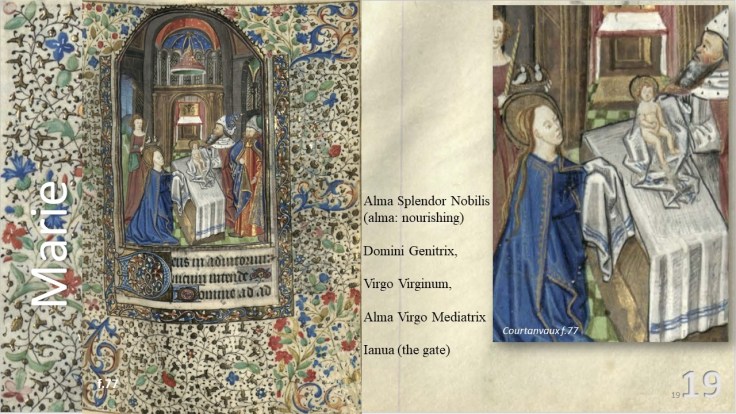 Marie
Deus in adiutorium
meum intende
Domine ad ad
f.77
Alma Splendor Nobilis
(alma: nourishing)
Domini Genitrix,
Virgo Virginum,
Alma Virgo Mediatrix
Ianua (the gate)
Courtanvaux f.77
19
19